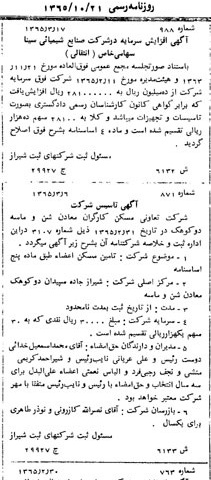 روزنامه‌رسمی ۱۳۶۵/۱۰/۲۱
شماره ۹۸۸ ۱۳۶۵/۳/۱۷
آگهی افزایش سرمایه درشرکت صنایع شیمیائی سینا
سهامی‌خاص ( انتقالی )
باستناد صورتجلسه مجمع عمومی فوق‌العاده مورخ ۱۱/
۱۳۶۳ و هیئت‌مدیره مورخ ۱۳۶۵/۲/۱۱ شرکت فوق سرمایه
شرکت از دمیلیون ریال به ۲۸۱۰۰۰۰۰۰ ریال افزایش‌یافت
که برابرگواهی کانون کارشناسان رسمی دادگستری بصورت
تاسیسات و تجهیزات میباشد و کلا به ۲۸۱۰۰ سهم ده‌هزار
ریالی تقسیم شده است و ماده ۴ اساسنامه بشرح فوق اصلاح
گردید .
مسئول ثبت شرکتهای ثبت شیراز
ش ۶۱۳۲ ج ۲۹۹۲۷
شماره ۸۷۱ ۱۳۶۵/۳/۶
آگهی تاسیس شرکت
شرکت تعاونی مسکن کارگران معادن شن و ماسه
دوکوهک در تاریخ ۱۳۶۵/۲/۳۱ ذیل شماره ۳۰۷ دراین
اداره ثبت و خلاصه شرکتنامه آن بشرح زیر آگهی میگردد .
۱ - موضوع شرکت : تامین مسکن اعضاء طبق ماده پنج
اساسنامه
۲ - مرکز اصلی شرکت : شیراز جاده سپیدان دوکوهک
معادن شن و ماسه
۳ - مدت : از تاریخ ثبت بمدت نامحدود
۴ - سرمایه شرکت : مبلغ ۳۰۰۰۰ ریال نقدی که به ۳۰
سهم یکهزارریالی تقسیم شده است .
۵ - مدیران و دارندگان حق‌امضاء : آقای محمداسمعیل‌خدائی
دوست رئیس و علی عربانی نایب‌رئیس و شیراحمدکریمی
منشی و نجف رجبی‌فرد و الیاس نعمتی اعضاء علی‌البدل برای
سه سال انتخاب و حق‌امضاء با رئیس و نایب‌رئیس متفقا با مهر
شرکت معتبر خواهد بود .
۶ - بازرسان شرکت : آقای نصراله کازرونی و نوذر طاهری
برای یکسال .
مسئول ثبت شرکتهای ثبت شیراز
ش ۶۱۳۳ ج ۲۹۹۲۷
شماره ۷۶۳ ۱۳۶۵/۲/۳۰